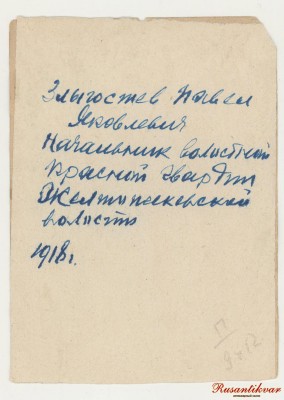 Злыгостев Павел
Яковлевич
Начальник волостной
Красной гвардии
Желтышевской
волости
1918г.
Rusantikvar